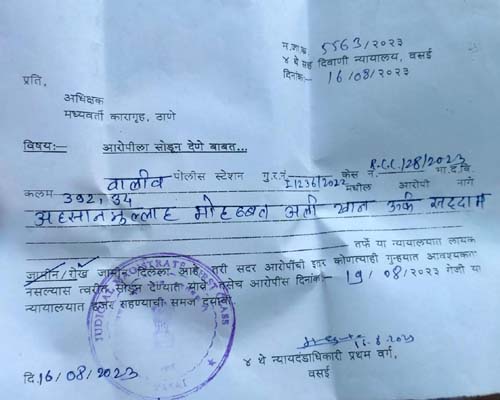 म.जा.क्र. 5563/२०२३
४ थे सह दिवाणी न्यायालय, वसई
दिनांक:- 16/08/२०२३
प्रति,
अधिक्षक
मध्यवर्ती कारागृह, ठाणे
विषय:- आरोपीला सोडून देणे बाबत...
वालीव पोलीस स्टेशन गु.र.नं. I/1236/2022 केस नं. R.C.C./128/2023 भा.द.वि.
कलम 392, 34 मधील आरोपी नामे
मोहब्बत अली खान उर्फ सरदार
तर्फे या न्यायालयात लायक
जामीन/रोख जामीन दिलेला आहे. तरी सदर आरोपीची इतर कोणत्याही गुन्ह्यात आवश्यकता
नसल्यास त्वरीत सोडून देण्यात यावे तसेच आरोपीस दिनांक:- 19/08/२०२३ रोजी या
न्यायालयात हजर राहण्याची समज द्यावी.
JUDICIAL MAGISTRATE FIRST CLASS
16.8.2023
४ थे न्यायदंडाधिकारी प्रथम वर्ग,
वसई
दि. 16/08/२०२३